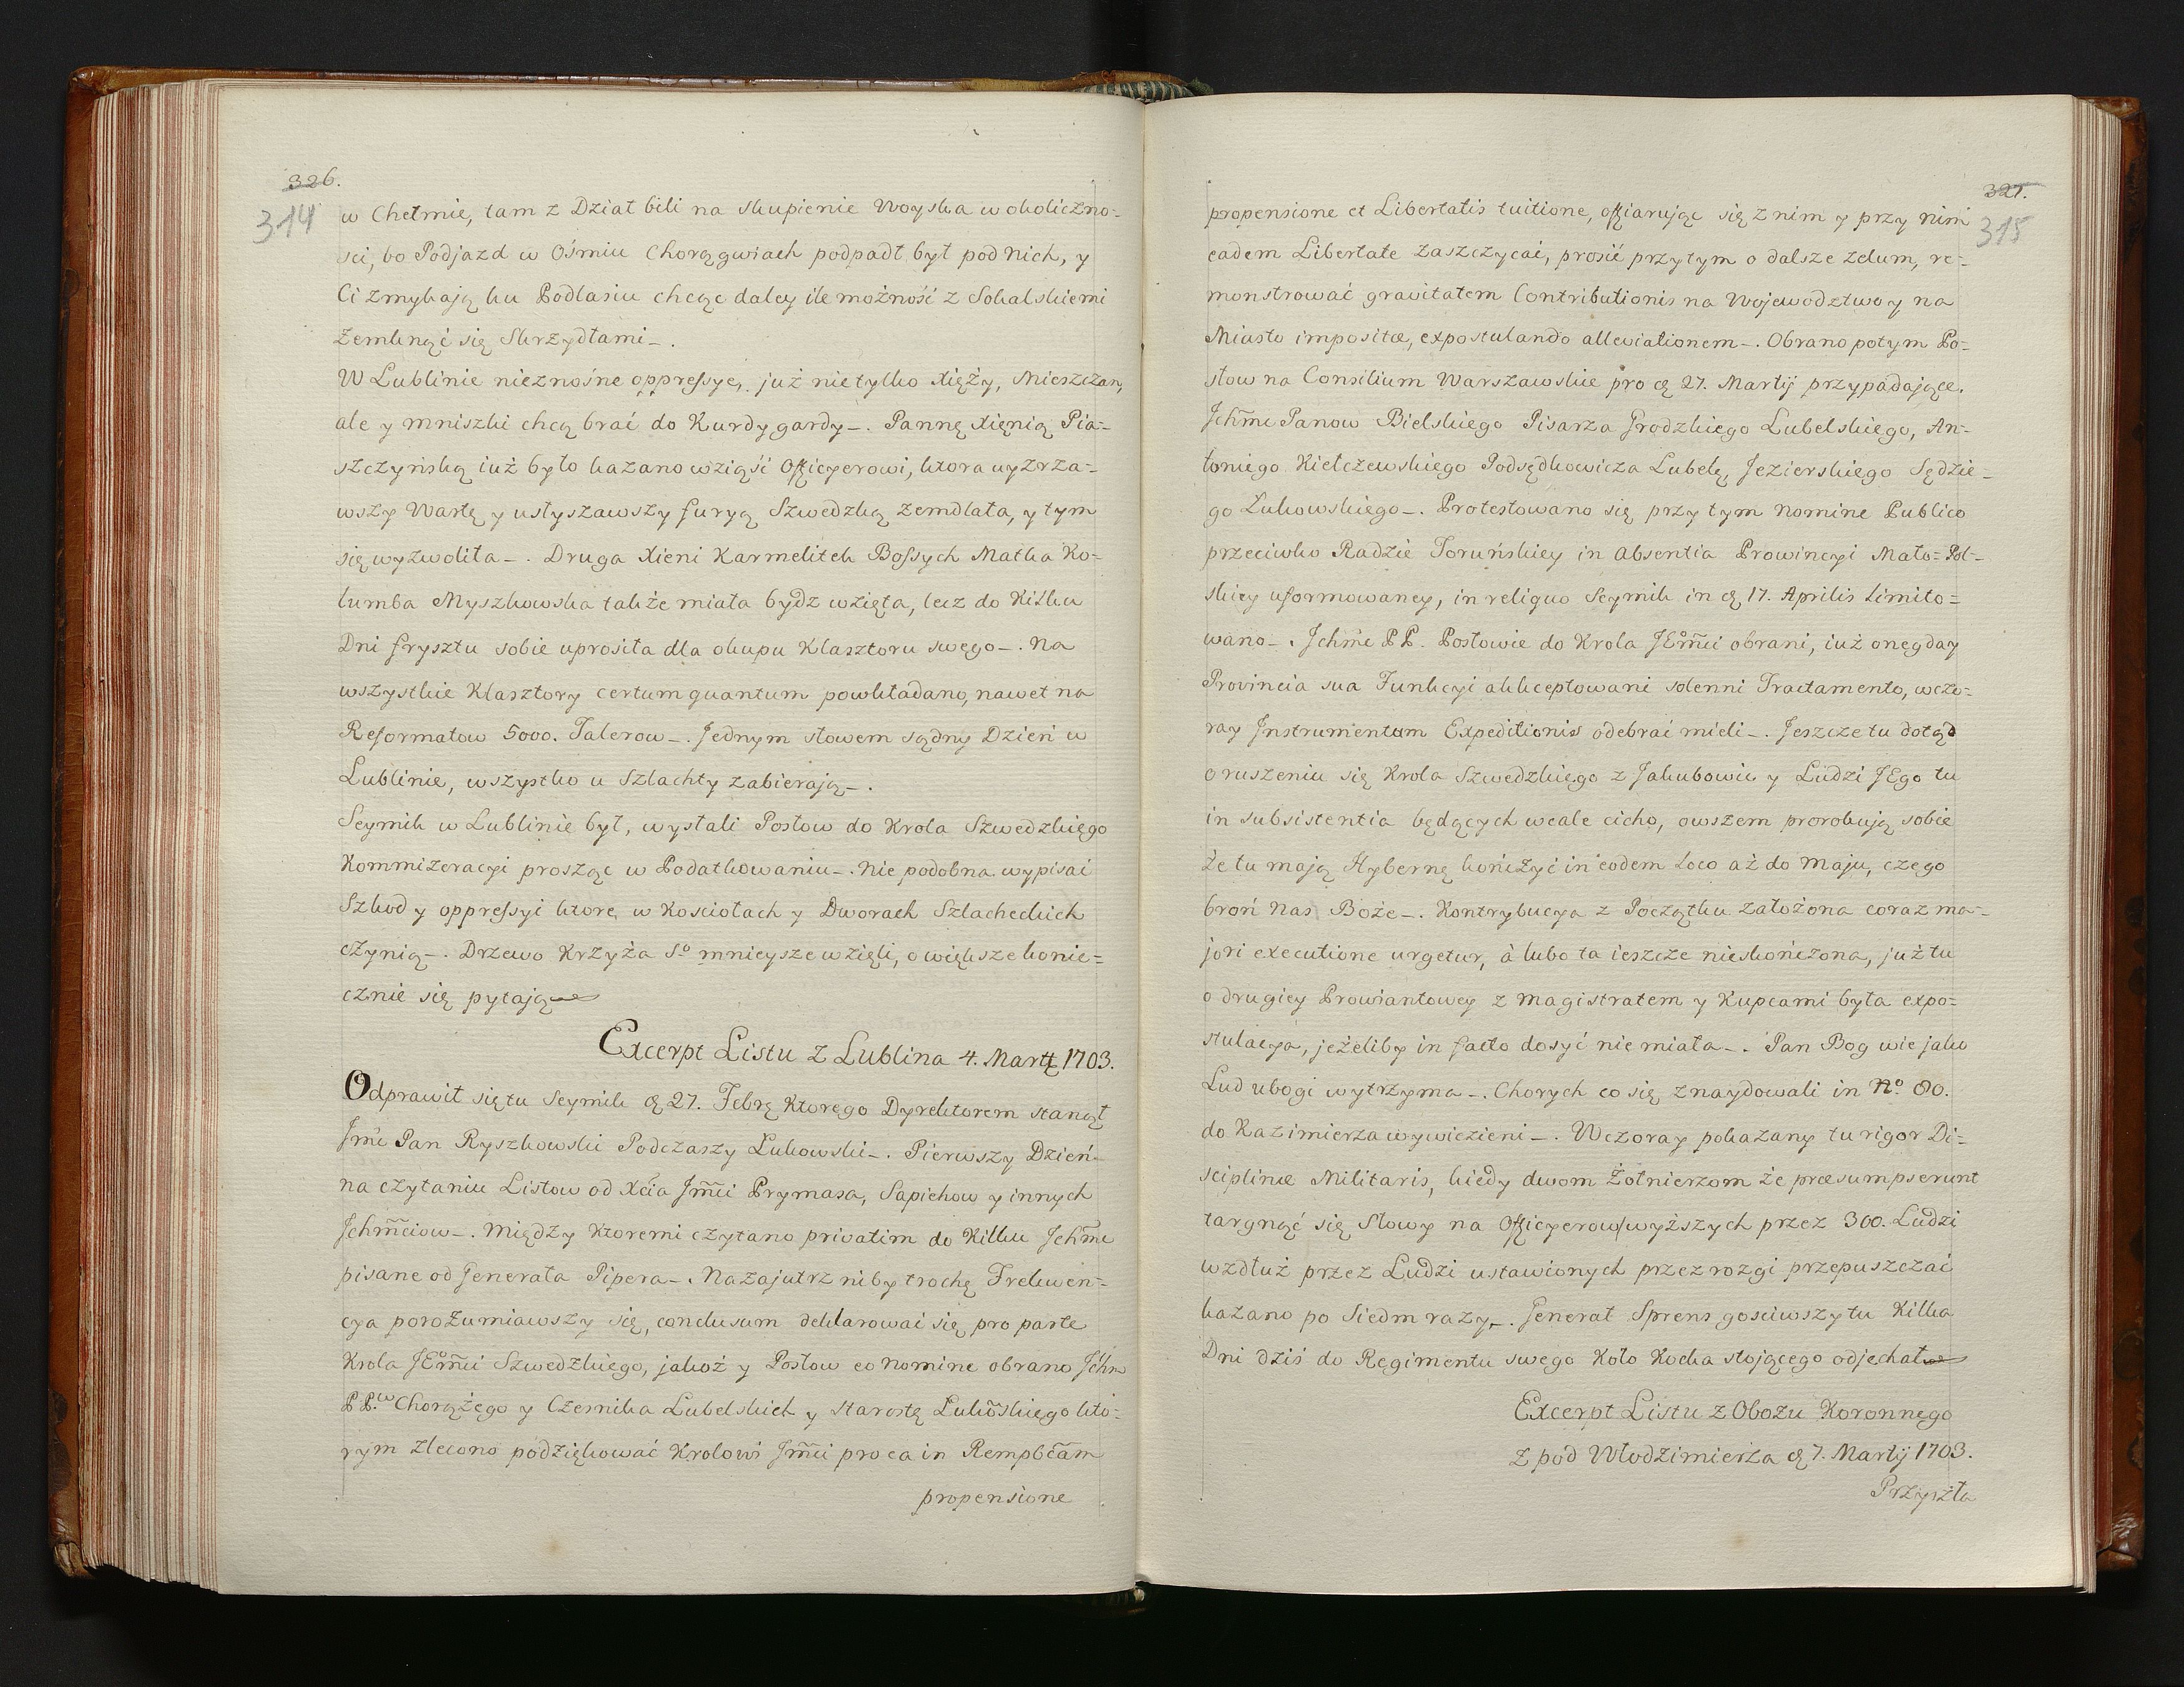 326.
314
w Chełmie, tam z Dział bili na skupienie Woyska w okoliczno=
sci, bo Podjazd w Ośmiu Chorągwiach podpadł był pod nich, y
Ci zmykają ku Podlasiu chcąc daley ile możność z Sokalskiemi
Zemknąć się Skrzydłami_.
W Lublinie nieznośne oppressye, już nie tylko Xięży, Mieszczan,
ale y mniszki chcą brać do Kurdygardy_. Pannę Xięnię Pia=
szczyńską iuż było kazano wziąść Officyerowi, ktora uyzrza=
wszy Wartę y usłyszawszy furyą Szwedzką zemdlała, y tym
się wyzwoliła_. Druga Xieni Karmelitek Bossych Matka Ko=
lumba Myszkowska także miała bydz wzięta, lecz do Kilku
Dni frysztu sobie uprosiła dla okupu Klasztoru swego_. Na
wszystkie Klasztory certum quantum powkładano, nawet na
Reformatow 5000. Talerow_. Jednym słowem sądny Dzień w
Lublinie, wszystko u Szlachty zabierają_.
Seymik w Lublinie był, wysłali Posłow do Krola Szwedzkiego
Kommizeracyi prosząc w Podatkowaniu_. Nie podobna wypisać
Szkod y oppressyi ktore w Kosciołach y Dworach Szlacheckich
czynią_. Drzewo Krzyża S° mnieysze wzięli, o większe konie=
cznie się pytają
Excerpt Listu z Lublina 4. Martÿ 1703.
Odprawił się tu Seymik ą 27. Febrę Ktorego Dyrektorem stanął
Jm̃ć Pan Ryszkowski Podczaszy Łukowski_. Pierwszy Dzień
na czytaniu Listow od Xćia Jm̃ći Prymasa, Sapiehow y innych
Jchm̃ciow_. Między Ktoremi czytano privatim do Kilku Jchm̃c
pisane od Generała Pipera_. Nazajutrz niby trochę Frekwen=
cya porozumiawszy się, conclusum deklarować się pro parte
Krola JEm̃ći Szwedzkiego, jakoż y Posłow eo nomine obrano Jchm̃
PP.ʷ Chorążego y Czesnika Lubelskich y Starostę Łukõskiego kto=
rym zlecono podziękować Krolowi Jm̃ći pro ea in Rempbc̃am
propensione
327.
315
propensione et Libertatis tuitione, offiarując się z nim y przy nim
eadem Libertate zaszczycać, prosić przytym o dalsze zelum, re=
monstrować gravitatem Contributionis na Wojewodztwo y na
Miasto impositæ, expostulando alleviationem_. Obrano potym Po=
słow na Consilium Warszawskie pro ą 27. Martÿ przypadające.
Jchm̃c Panow Bielskiego Pisarza Grodzkiego Lubelskiego, An=
toniego Kiełczewskiego Podsędkowicza Lubelę, Jezierskiego Sędzie=
go Łukowskiego_. Protestowano się przy tym nomine Publico
przeciwko Radzie Toruńskiey in absentia Prowincyi Mało=Pol=
skiey uformowaney, in reliquo Seymik in ą 17. Aprilis limito=
wano_. Jchm̃c PP. Posłowie do Krola JEm̃ći obrani, iuż onegday
Provincia sua Funkcyi akkceptowani solenni Tractamento, wczo=
ray Jnstrumentum Expeditionis odebrać mieli_. Jeszcze tu dotąd
o ruszeniu się Krola Szwedzkiego z Jakubowic y Ludzi JEgo tu
in subsistentia będących wcale cicho, owszem prorokują sobie
że tu mają Hybernę kończyć in eodem loco aż do Maju, czego
broń Nas Boże_. Kontrybucya z Początku założona coraz ma=
jori executione urgetur, à lubo ta ieszcze nieskończona, już tu
o drugiey Prowiantowey z Magistratem y Kupcami była expo=
stulacya, jeżeliby in facto dosyć nie miała_. Pan Bog wie jako
Lud ubogi wytrzyma_. Chorych co się znaydowali in N° 80.
do Kazimierza wywiezieni_. Wczoray pokazany tu rigor Di=
sciplinæ Militaris, kiedy dwom Żołnierzom że præsumpserunt
targnąć się Słowy na Officyerow wyższych przez 300. Ludzi
wzdłuż przez Ludzi ustawionych przez rozgi przepuszczać
kazano po Siedm razy_. Generał Sprens gosciwszy tu Kilka
Dni dziś do Regimentu swego Koło Kocka stojącego odjechał
Excerpt Listu z Obozu Koronnego
z pod Włodzimierza ą 7. Martÿ 1703.
Przyszła